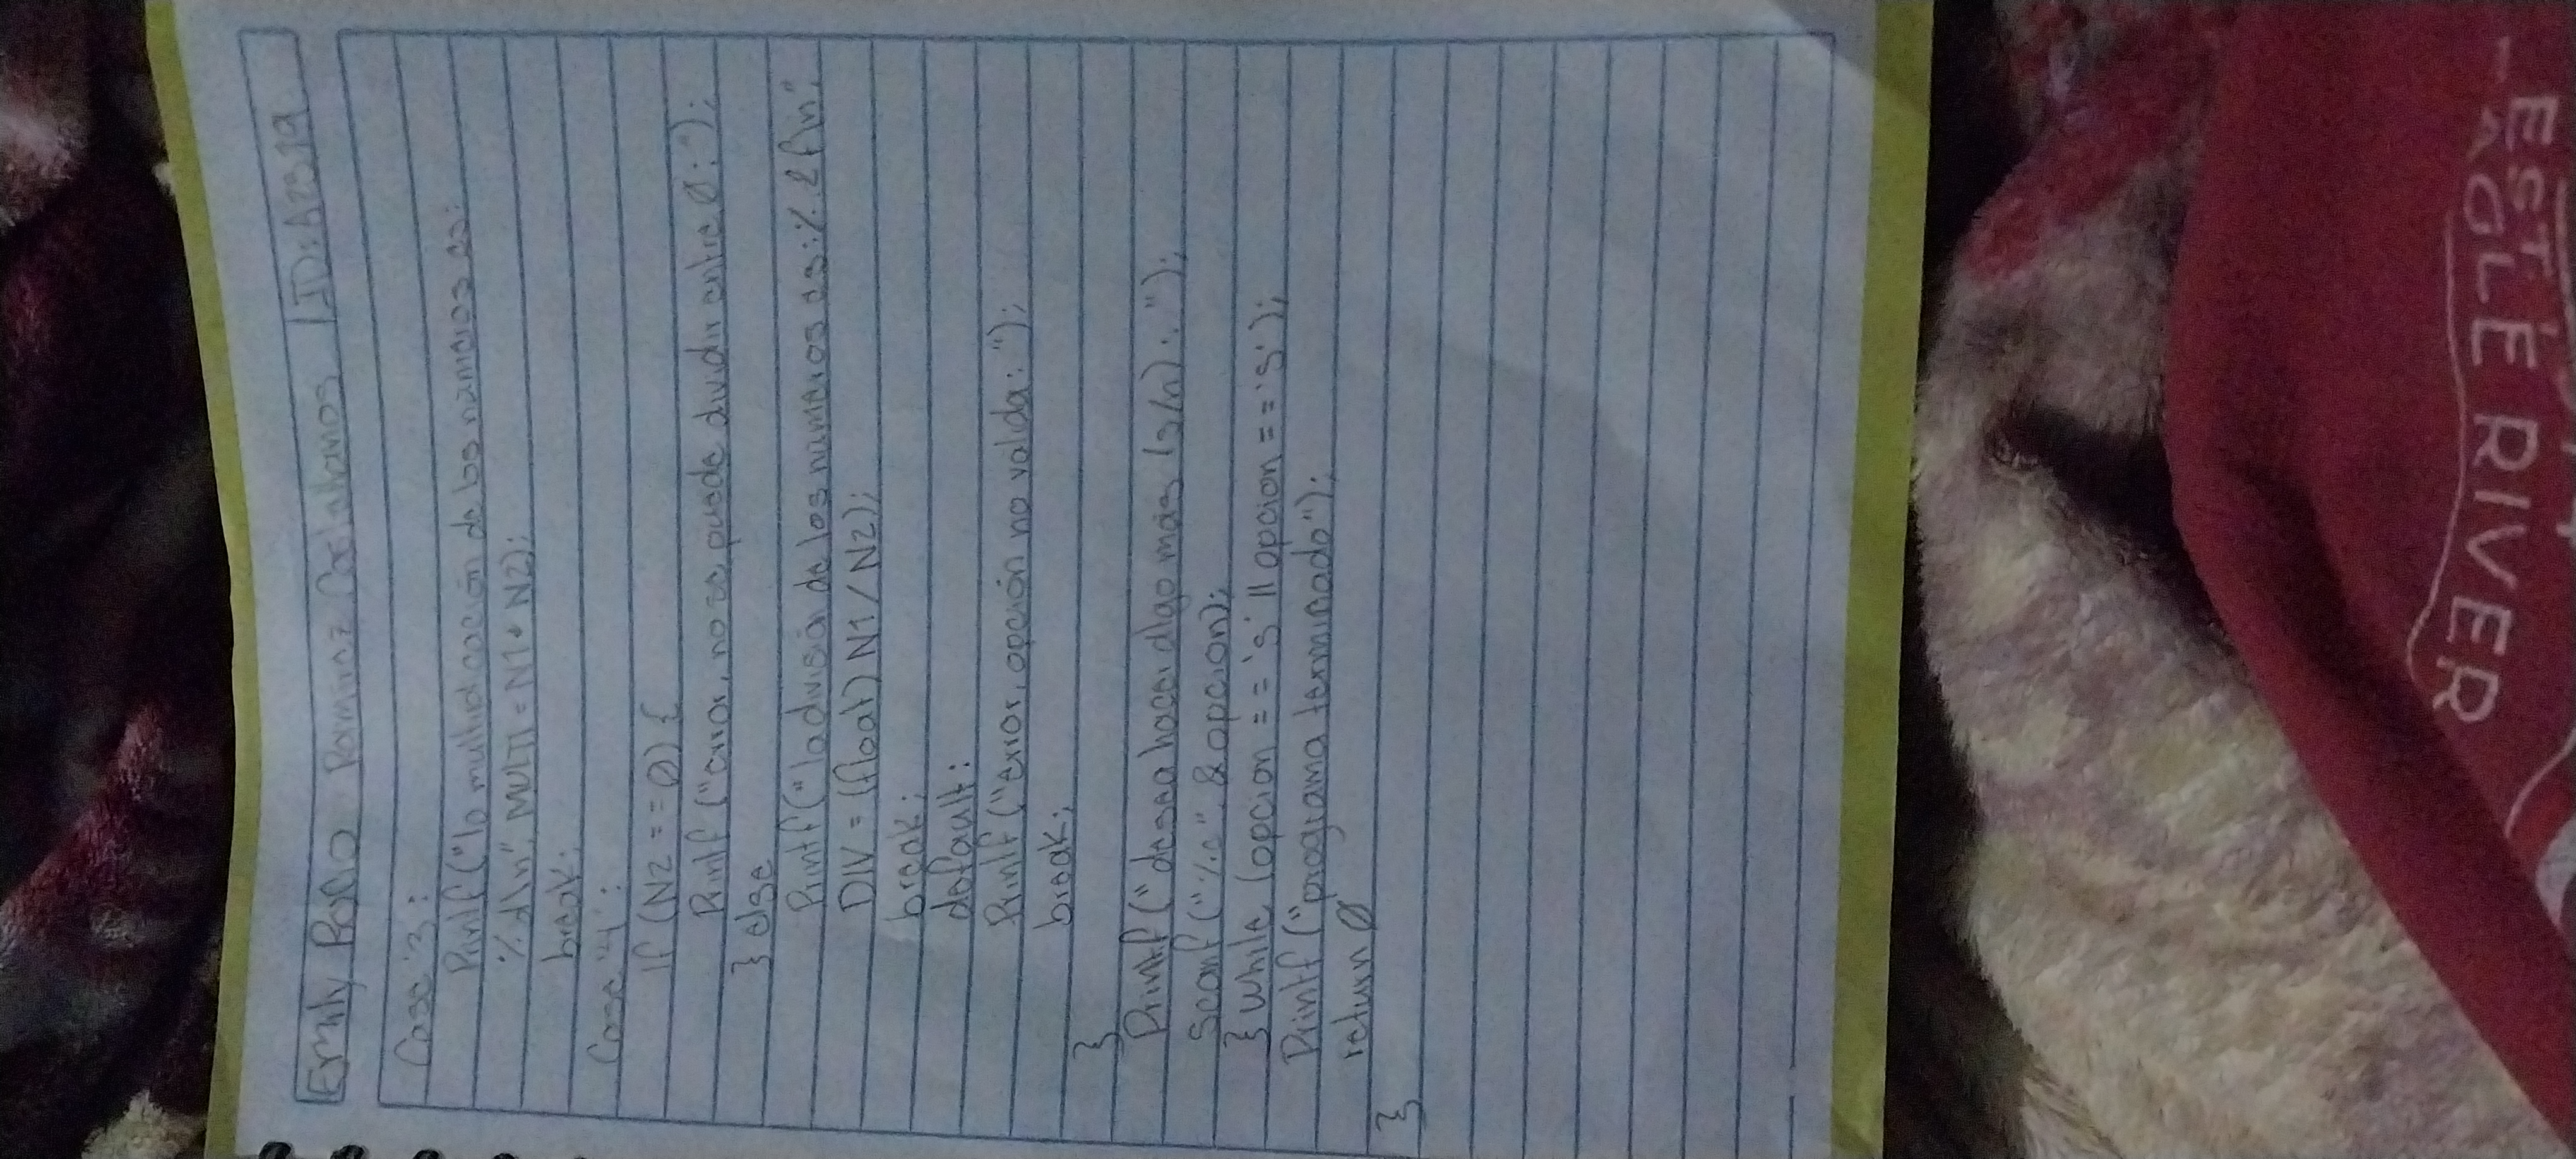 Emily Ramirez Castellanos ID: A23519
Case '3:
Printf ("la multiplicación de los números es:
%.d\n", MULTI = N1 * N2);
break;
Case '4':
If (N2 == 0) {
Printf ("error, no se puede dividir entre 0:");
} else
Printf ("la división de los numeros es:%.2f\n",
DIV = (float) N1 / N2);
break;
default:
Printf ("error, opción no valida:");
break;
}
Printf (" desea hacer algo más (s/n):");
Scanf ("%c", &opcion);
} while (opcion == 's' || opcion == 's');
Printf ("programa terminado");
return 0
}
EST.
EAGLE RIVER